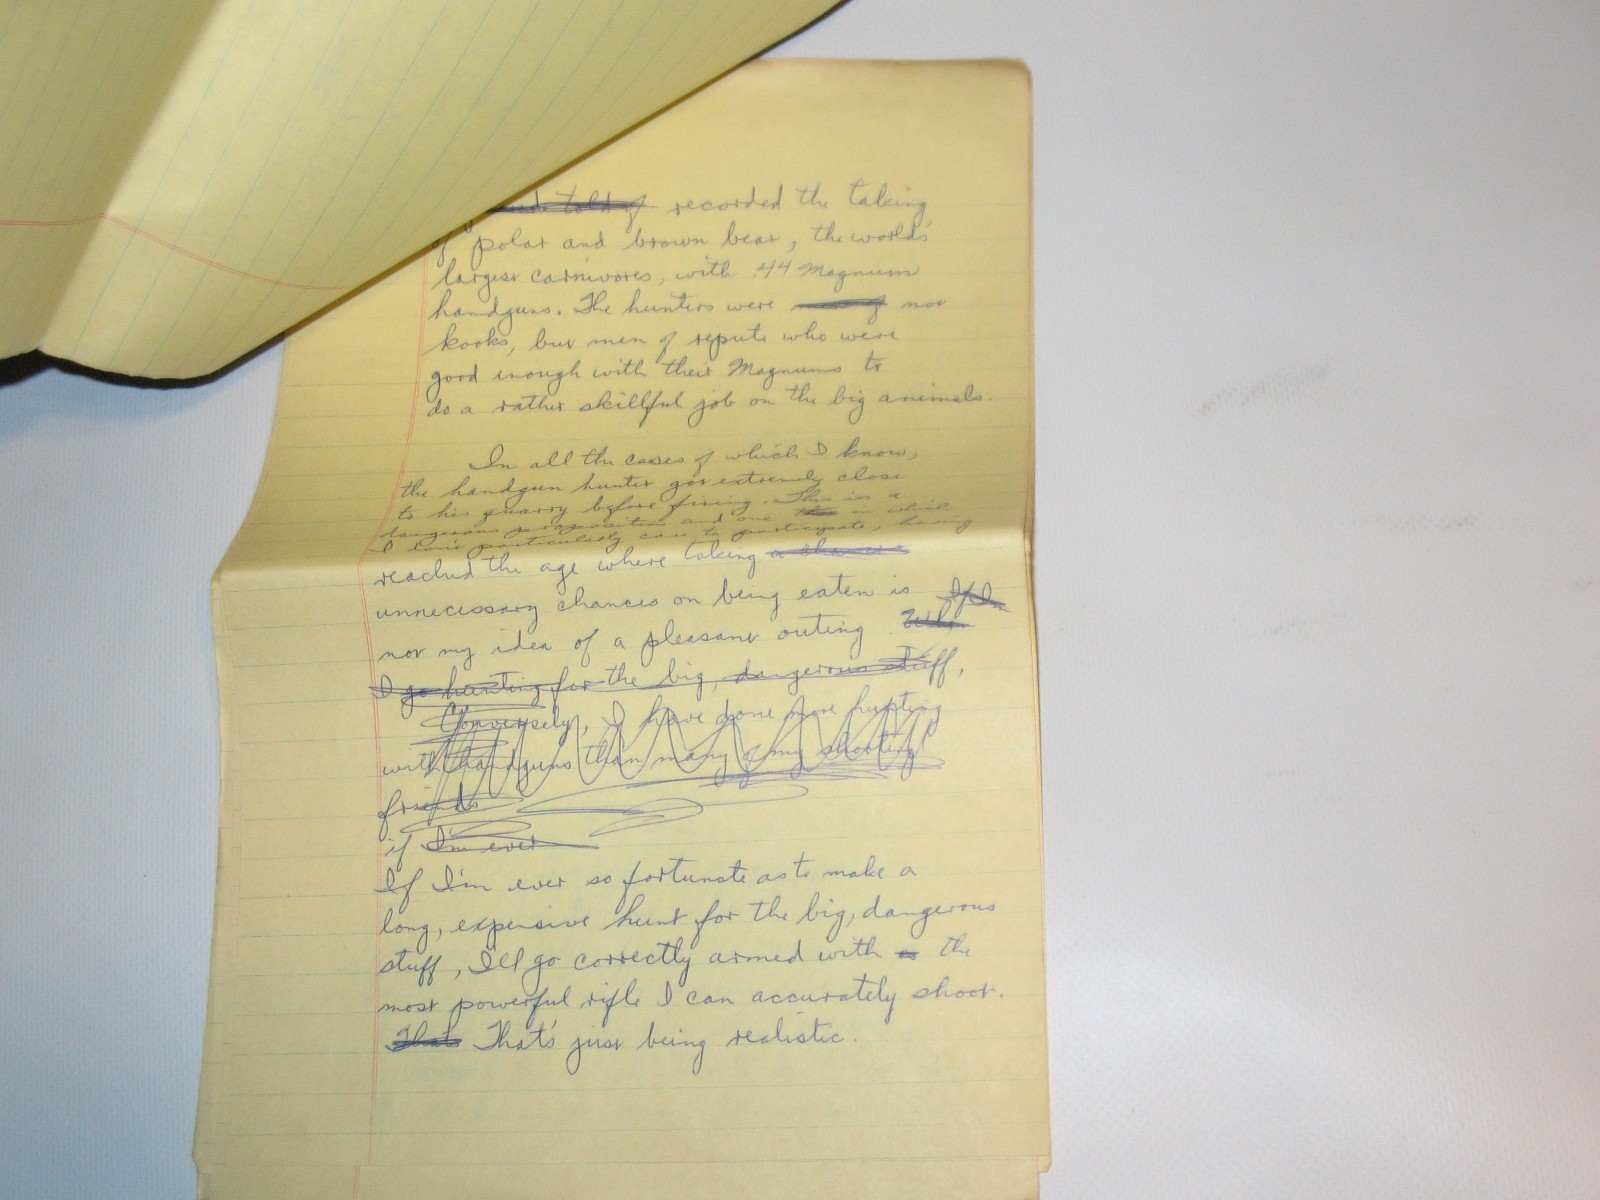 told of recorded the taking
of polar and brown bear, the world's
largest carnivores, with .44 Magnum
handguns. The hunters were not
kooks, but men of repute who were
good enough with their Magnums to
do a rather skillful job on the big animals.
In all the cases of which I know,
the handgun hunter got extremely close
to his quarry before firing. This is a
dangerous proposition and one in which
I don't particularly care to participate, having
reached the age where taking a chance
unnecessary chances on being eaten is If I'm
not my idea of a pleasant outing. When
I go hunting for the big, dangerous stuff,
Conversely, I have done more hunting
with handguns than many of my shooting
friends
if I'm ever
If I'm ever so fortunate as to make a
long, expensive hunt for the big, dangerous
stuff, I'll go correctly armed with a the
most powerful rifle I can accurately shoot.
That's That's just being realistic.